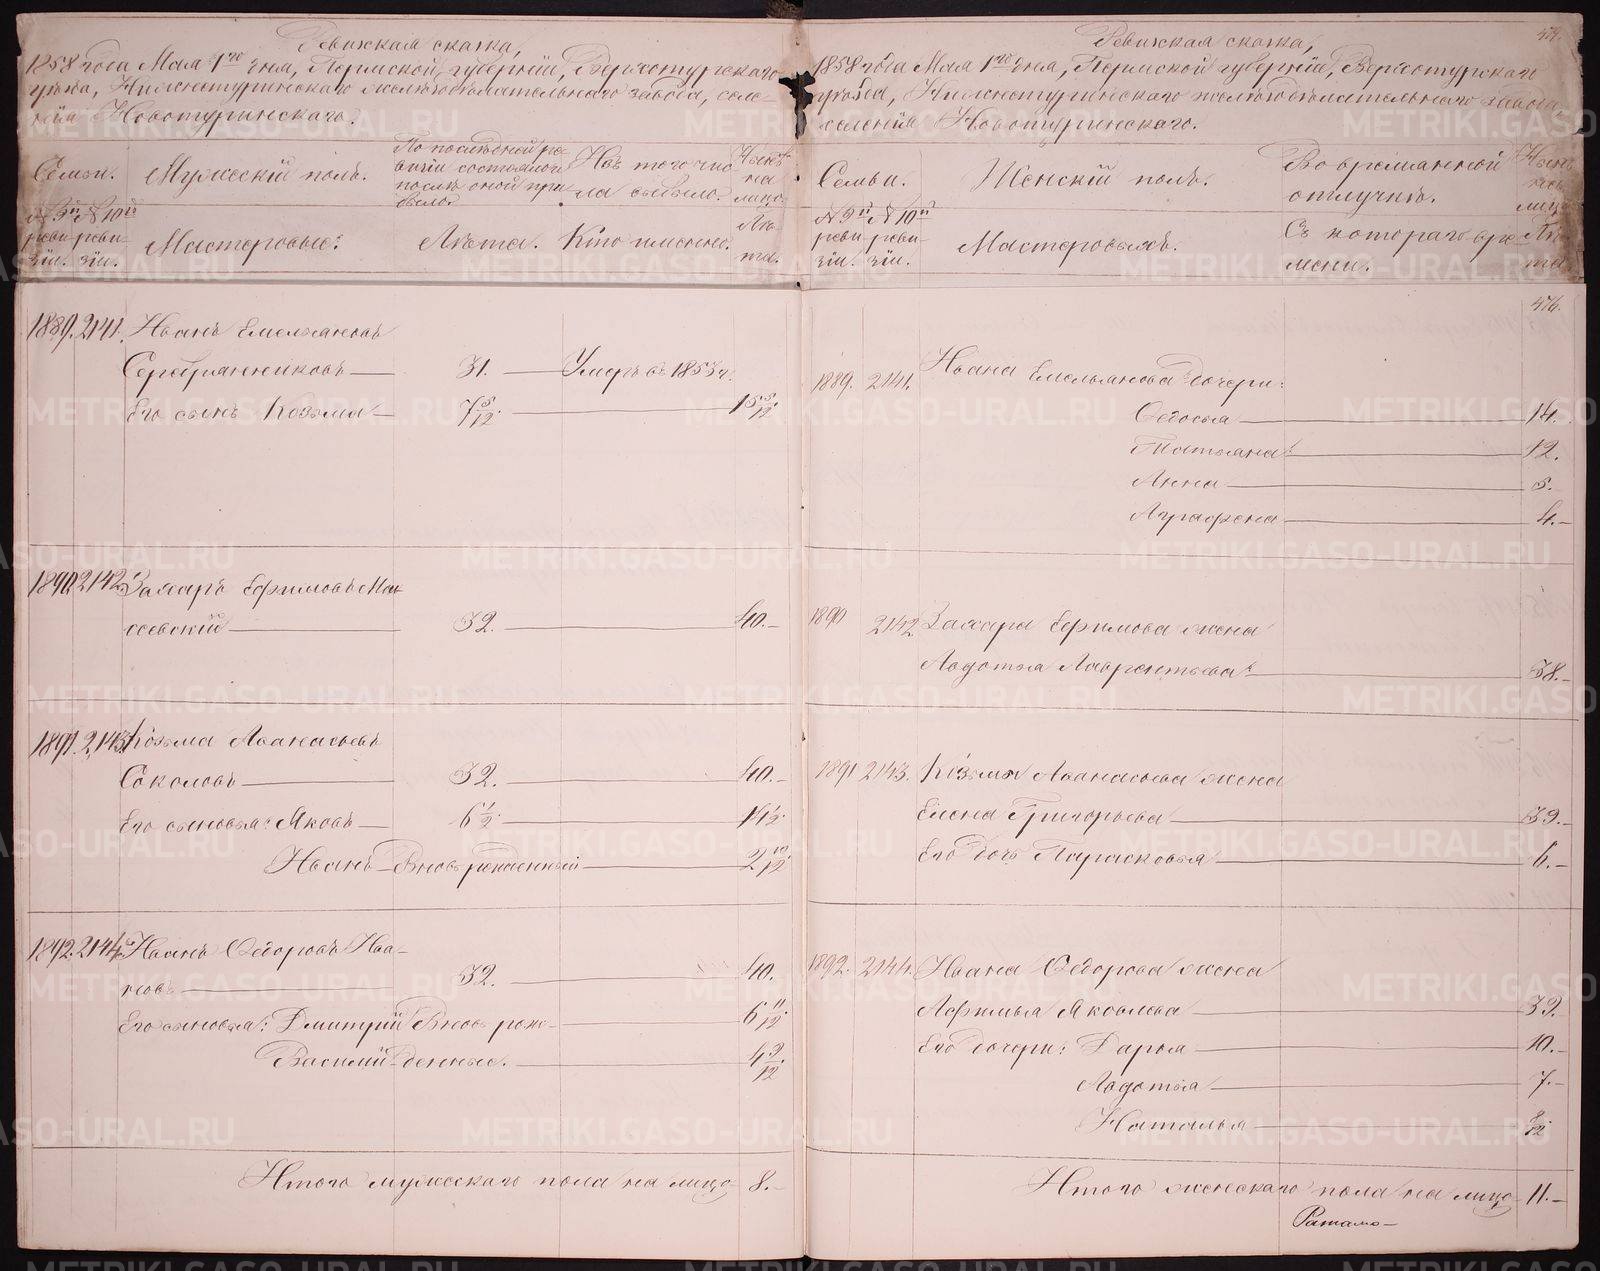 Ревижская сказка,
1858 года Мая 1го дня, Пермской губернiи, Верхотурскаго
уѣзда, Нижнетуринскаго желѣзодѣлательнаго завода, селе-
нiя Новотуринскаго.
Семьи. Мужескiй полъ. По послѣдней ре- Изъ того чис- Нынѣ
вiзiи состояло и ла выбыло. на
послѣ оной при- лицо.
было.
№ 9й № 10й
реви- реви- Мастеровые: Лѣта. Кто именно. Лѣ-
зiи. зiи. та.
1889. 2141. Иванъ Емельяновъ
Серебрянниковъ 31. Умеръ въ 1853 г.
Его сынъ Козьма 7 5/12. 15 5/12.
1890. 2142. Захаръ Ефимовъ
32. 40.
1891. 2143. Козьма Аѳанасьевъ
Соколовъ 32. 40.
Его сыновья: Яковъ 6 1/2. 14 1/2.
Иванъ Вновь рожденный 2 10/12.
1892. 2144. Иванъ Ѳедоровъ Ива-
новъ 32. 40.
Его сыновья: Дмитрiй Вновь рож- 6 11/12.
Василiй денные. 4 9/12.
Итого мужескаго пола на лицо 8.
Ревижская сказка,
1858 года Мая 1го дня, Пермской губернiи, Верхотурскаго
уѣзда, Нижнетуринскаго желѣзодѣлательнаго завода
селенiя Новотуринскаго.
Семьи. Женскiй полъ. Во временной Нынѣ
отлучкѣ. на
лицо
№ 9й № 10й
реви- реви- Мастеровыхъ. Съ котораго вре- Лѣ-
зiи. зiи. мени. та.
476.
1889. 2141. Ивана Емельянова дочери:
Ѳедосья 14.
Татьяна 12.
Анна 5.
Аграфена 4.
1890 2142 Захара Ефимова жена
Авдотья Лаврентьева 38.
1891 2143. Козьмы Аѳанасьева жена
Елена Григорьева 39.
Его дочь Парасковья 6.
1892. 2144. Ивана Ѳедорова жена
Афимья Яковлева 39.
Его дочери: Дарья 10.
Авдотья 7.
Наталья 8/12
Итого женскаго пола на лицо 11.
METRIKI.GASO-URAL.RU